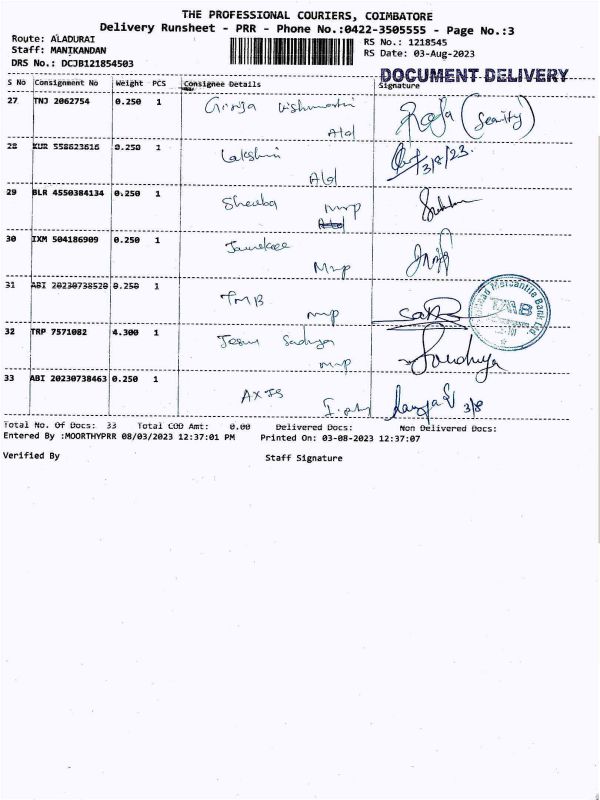 THE PROFESSIONAL COURIERS, COIMBATORE
Delivery Runsheet - PRR - Phone No.:0422-3505555 - Page No.:3
Route: ALADURAI
Staff: MANIKANDAN
DRS No.: DCJB121854503
RS No.: 1218545
RS Date: 03-Aug-2023
DOCUMENT DELIVERY
S No Consignment No Weight PCS Consignee Details Signature
27 TNJ 2062754 0.250 1
Atd
28 KUR 558623616 0.250 1 Lakshmi
3/8/23.
Atd
29 BLR 4550384134 0.250 1 Sheeba
30 IXM 504186909 0.250 1
31 ABI 20230738520 0.250 1 TMB
32 TRP 7571082 4.300 1
33 ABI 20230738463 0.250 1 AXIS
3/8
Total No. Of Docs: 33 Total COD Amt: 0.00 Delivered Docs: Non Delivered Docs:
Entered By :MOORTHYPRR 08/03/2023 12:37:01 PM Printed On: 03-08-2023 12:37:07
Verified By Staff Signature